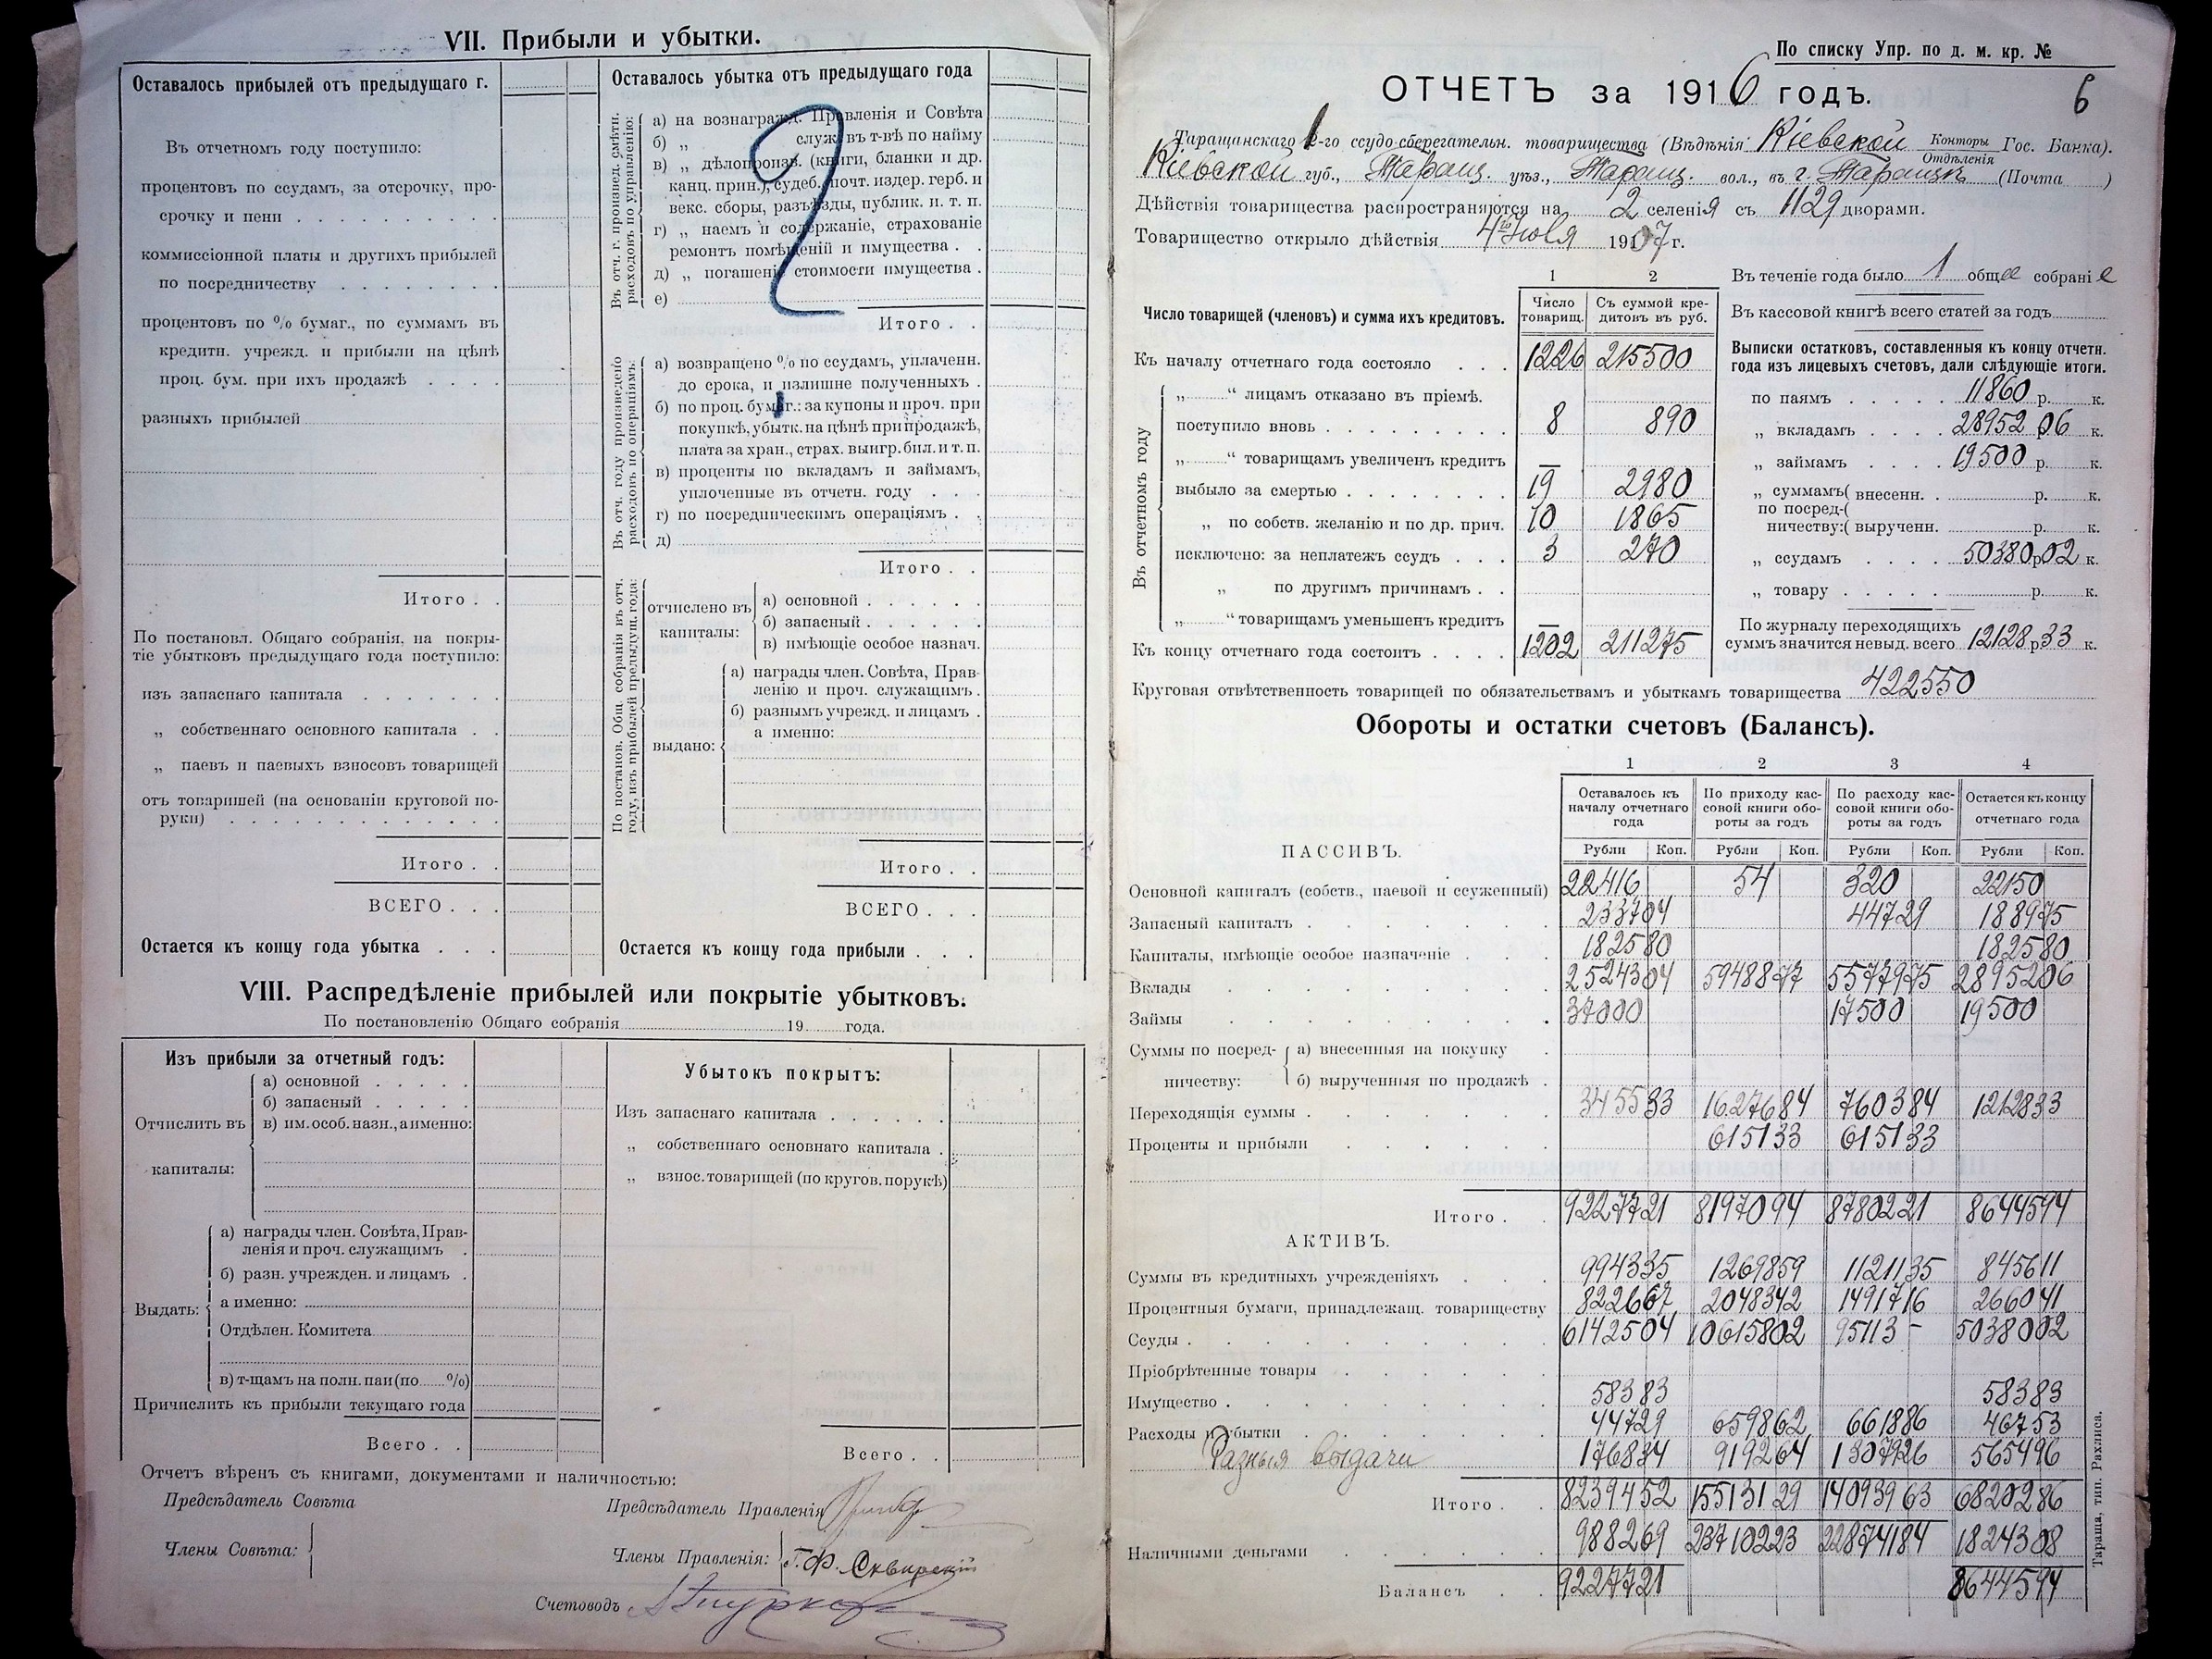 VII. Прибыли и убытки.
Оставалось прибылей отъ предыдущаго г.
Въ отчетномъ году поступило:
процентовъ по ссудамъ, за отсрочку, про-
срочку и пени
коммиссіонной платы и другихъ прибылей
по посредничеству
процентовъ по % бумаг., по суммамъ въ
кредитн. учрежд. и прибыли на цѣнѣ
проц. бум. при ихъ продажѣ
разныхъ прибылей
Итого
По постановл. Общаго собранія, на покры-
тіе убытковъ предыдущаго года поступило:
изъ запаснаго капитала
„ собственнаго основного капитала
„ паевъ и паевыхъ взносовъ товарищей
отъ товаришей (на основаніи круговой по-
руки)
Итого
ВСЕГО
Остается къ концу года убытка
Оставалось убытка отъ предыдущаго года
Въ отч. г. произвед. смѣтн.
расходовъ по управленію:
а) на вознагражд. Правленія и Совѣта
б) „ служ. въ т-вѣ по найму
в) „ дѣлопроизв. (книги, бланки и др.
канц. прин.), судеб. почт. издер. герб. и
векс. сборы, разъѣзды, публик. и. т. п.
г) „ наемъ и содержаніе, страхованіе
ремонтъ помѣщеній и имущества
д) „ погашеніе стоимости имущества
е)
Итого
Въ отч. году произведено
расходовъ по операціямъ:
а) возвращено % по ссудамъ, уплаченн.
до срока, и излишне полученныхъ
б) по проц. бумаг.: за купоны и проч. при
покупкѣ, убытк. на цѣнѣ при продажѣ,
плата за хран., страх. выигр. бил. и т. п.
в) проценты по вкладамъ и займамъ,
уплоченные въ отчетн. году
г) по посредническимъ операціямъ
д)
Итого
По постанов. Общ. собранія въ отч.
году, изъ прибылей предыдущ. года:
отчислено въ
капиталы:
а) основной
б) запасный
в) имѣющіе особое назнач.
выдано:
а) награды член. Совѣта, Прав-
ленію и проч. служащимъ
б) разнымъ учрежд. и лицамъ
а именно:
Итого
ВСЕГО
Остается къ концу года прибыли
VIII. Распредѣленіе прибылей или покрытіе убытковъ.
По постановленію Общаго собранія 19 года.
Изъ прибыли за отчетный годъ:
Отчислить въ
капиталы:
а) основной
б) запасный
в) им. особ. назн., а именно:
Выдать:
а) награды член. Совѣта, Прав-
ленія и проч. служащимъ
б) разн. учрежден. и лицамъ
а именно:
Отдѣлен. Комитета
в) т-щамъ на полн. паи (по %)
Причислить къ прибыли текущаго года
Всего
Убытокъ покрытъ:
Изъ запаснаго капитала
„ собственнаго основного капитала
„ взнос. товарищей (по кругов. порукѣ)
Всего
Отчетъ вѣренъ съ книгами, документами и наличностью:
Предсѣдатель Совѣта
Члены Совѣта:
Предсѣдатель Правленія
Члены Правленія: Г. Ф. Сквирскій
Счетоводъ
По списку Упр. по д. м. кр. №
6
ОТЧЕТЪ за 1916 годъ.
Таращанскаго 1-го ссудо-сберегательн. товарищества (Вѣдѣнія Кіевской Конторы Отдѣленія Гос. Банка).
Кіевской губ., Таращ. уѣз., Таращ. вол., въ г. Таращѣ (Почта )
Дѣйствія товарищества распространяются на 2 селенія съ 1129 дворами.
Товарищество открыло дѣйствія 4го Іюля 1907 г.
Число товарищей (членовъ) и сумма ихъ кредитовъ.
1 2
Число товарищ. Съ суммой кре-дитовъ въ руб.
Къ началу отчетнаго года состояло 1226 215500
Въ отчетномъ году
„ “ лицамъ отказано въ пріемѣ.
поступило вновь 8 890
„ “ товарищамъ увеличенъ кредитъ —
выбыло за смертью 19 2980
„ по собств. желанію и по др. прич. 10 1865
исключено: за неплатежъ ссудъ 3 270
„ по другимъ причинамъ
„ “ товарищамъ уменьшенъ кредитъ —
Къ концу отчетнаго года состоитъ 1202 211275
Въ теченіе года было 1 общее собраніе
Въ кассовой книгѣ всего статей за годъ
Выписки остатковъ, составленныя къ концу отчетн.
года изъ лицевыхъ счетовъ, дали слѣдующіе итоги.
по паямъ 11860 р. к.
„ вкладамъ 28952 06 к.
„ займамъ 19500 р. к.
„ суммамъ ( внесенн. р. к.
по посред-(
ничеству:( вырученн. р. к.
„ ссудамъ 50380 р. 02 к.
„ товару р. к.
По журналу переходящихъ
суммъ значится невыд. всего 12128 р. 33 к.
Круговая отвѣтственность товарищей по обязательствамъ и убыткамъ товарищества 422550
Обороты и остатки счетовъ (Балансъ).
1 2 3 4
Оставалось къ началу отчетнаго года По приходу кас-совой книги обо-роты за годъ По расходу кас-совой книги обо-роты за годъ Остается къ концу отчетнаго года
Рубли Коп. Рубли Коп. Рубли Коп. Рубли Коп.
ПАССИВЪ.
Основной капиталъ (собств., паевой и ссуженный) 22416 54 320 22150
Запасный капиталъ 2337 04 447 29 1889 75
Капиталы, имѣющіе особое назначеніе 1825 80 1825 80
Вклады 25243 04 59488 77 55779 75 28952 06
Займы 37000 17500 19500
Суммы по посред-
ничеству:
а) внесенныя на покупку
б) вырученныя по продажѣ
Переходящія суммы 3455 33 16276 84 7603 84 12128 33
Проценты и прибыли 6151 33 6151 33
Итого 92277 21 81970 94 87802 21 86445 94
АКТИВЪ.
Суммы въ кредитныхъ учрежденіяхъ 9943 35 12698 59 11211 35 8456 11
Процентныя бумаги, принадлежащ. товариществу 8226 67 20483 42 14917 16 2660 41
Ссуды 61425 04 106158 02 95113 – 50380 02
Пріобрѣтенные товары
Имущество 583 83 583 83
Расходы и убытки 447 29 6598 62 6618 86 467 53
Разныя выдачи 1768 34 9192 64 13079 26 5654 96
Итого 82394 52 155131 29 140939 63 68202 86
Наличными деньгами 9882 69 237102 23 228741 84 18243 08
Балансъ 92277 21 86445 94
Тараща, тип. Рахлиса.